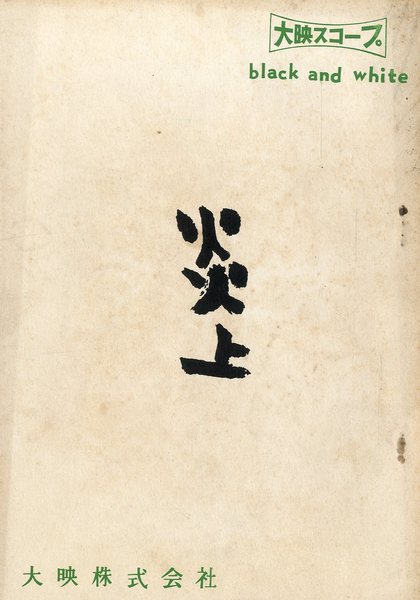 大映スコープ
black and white
炎上
大映株式会社